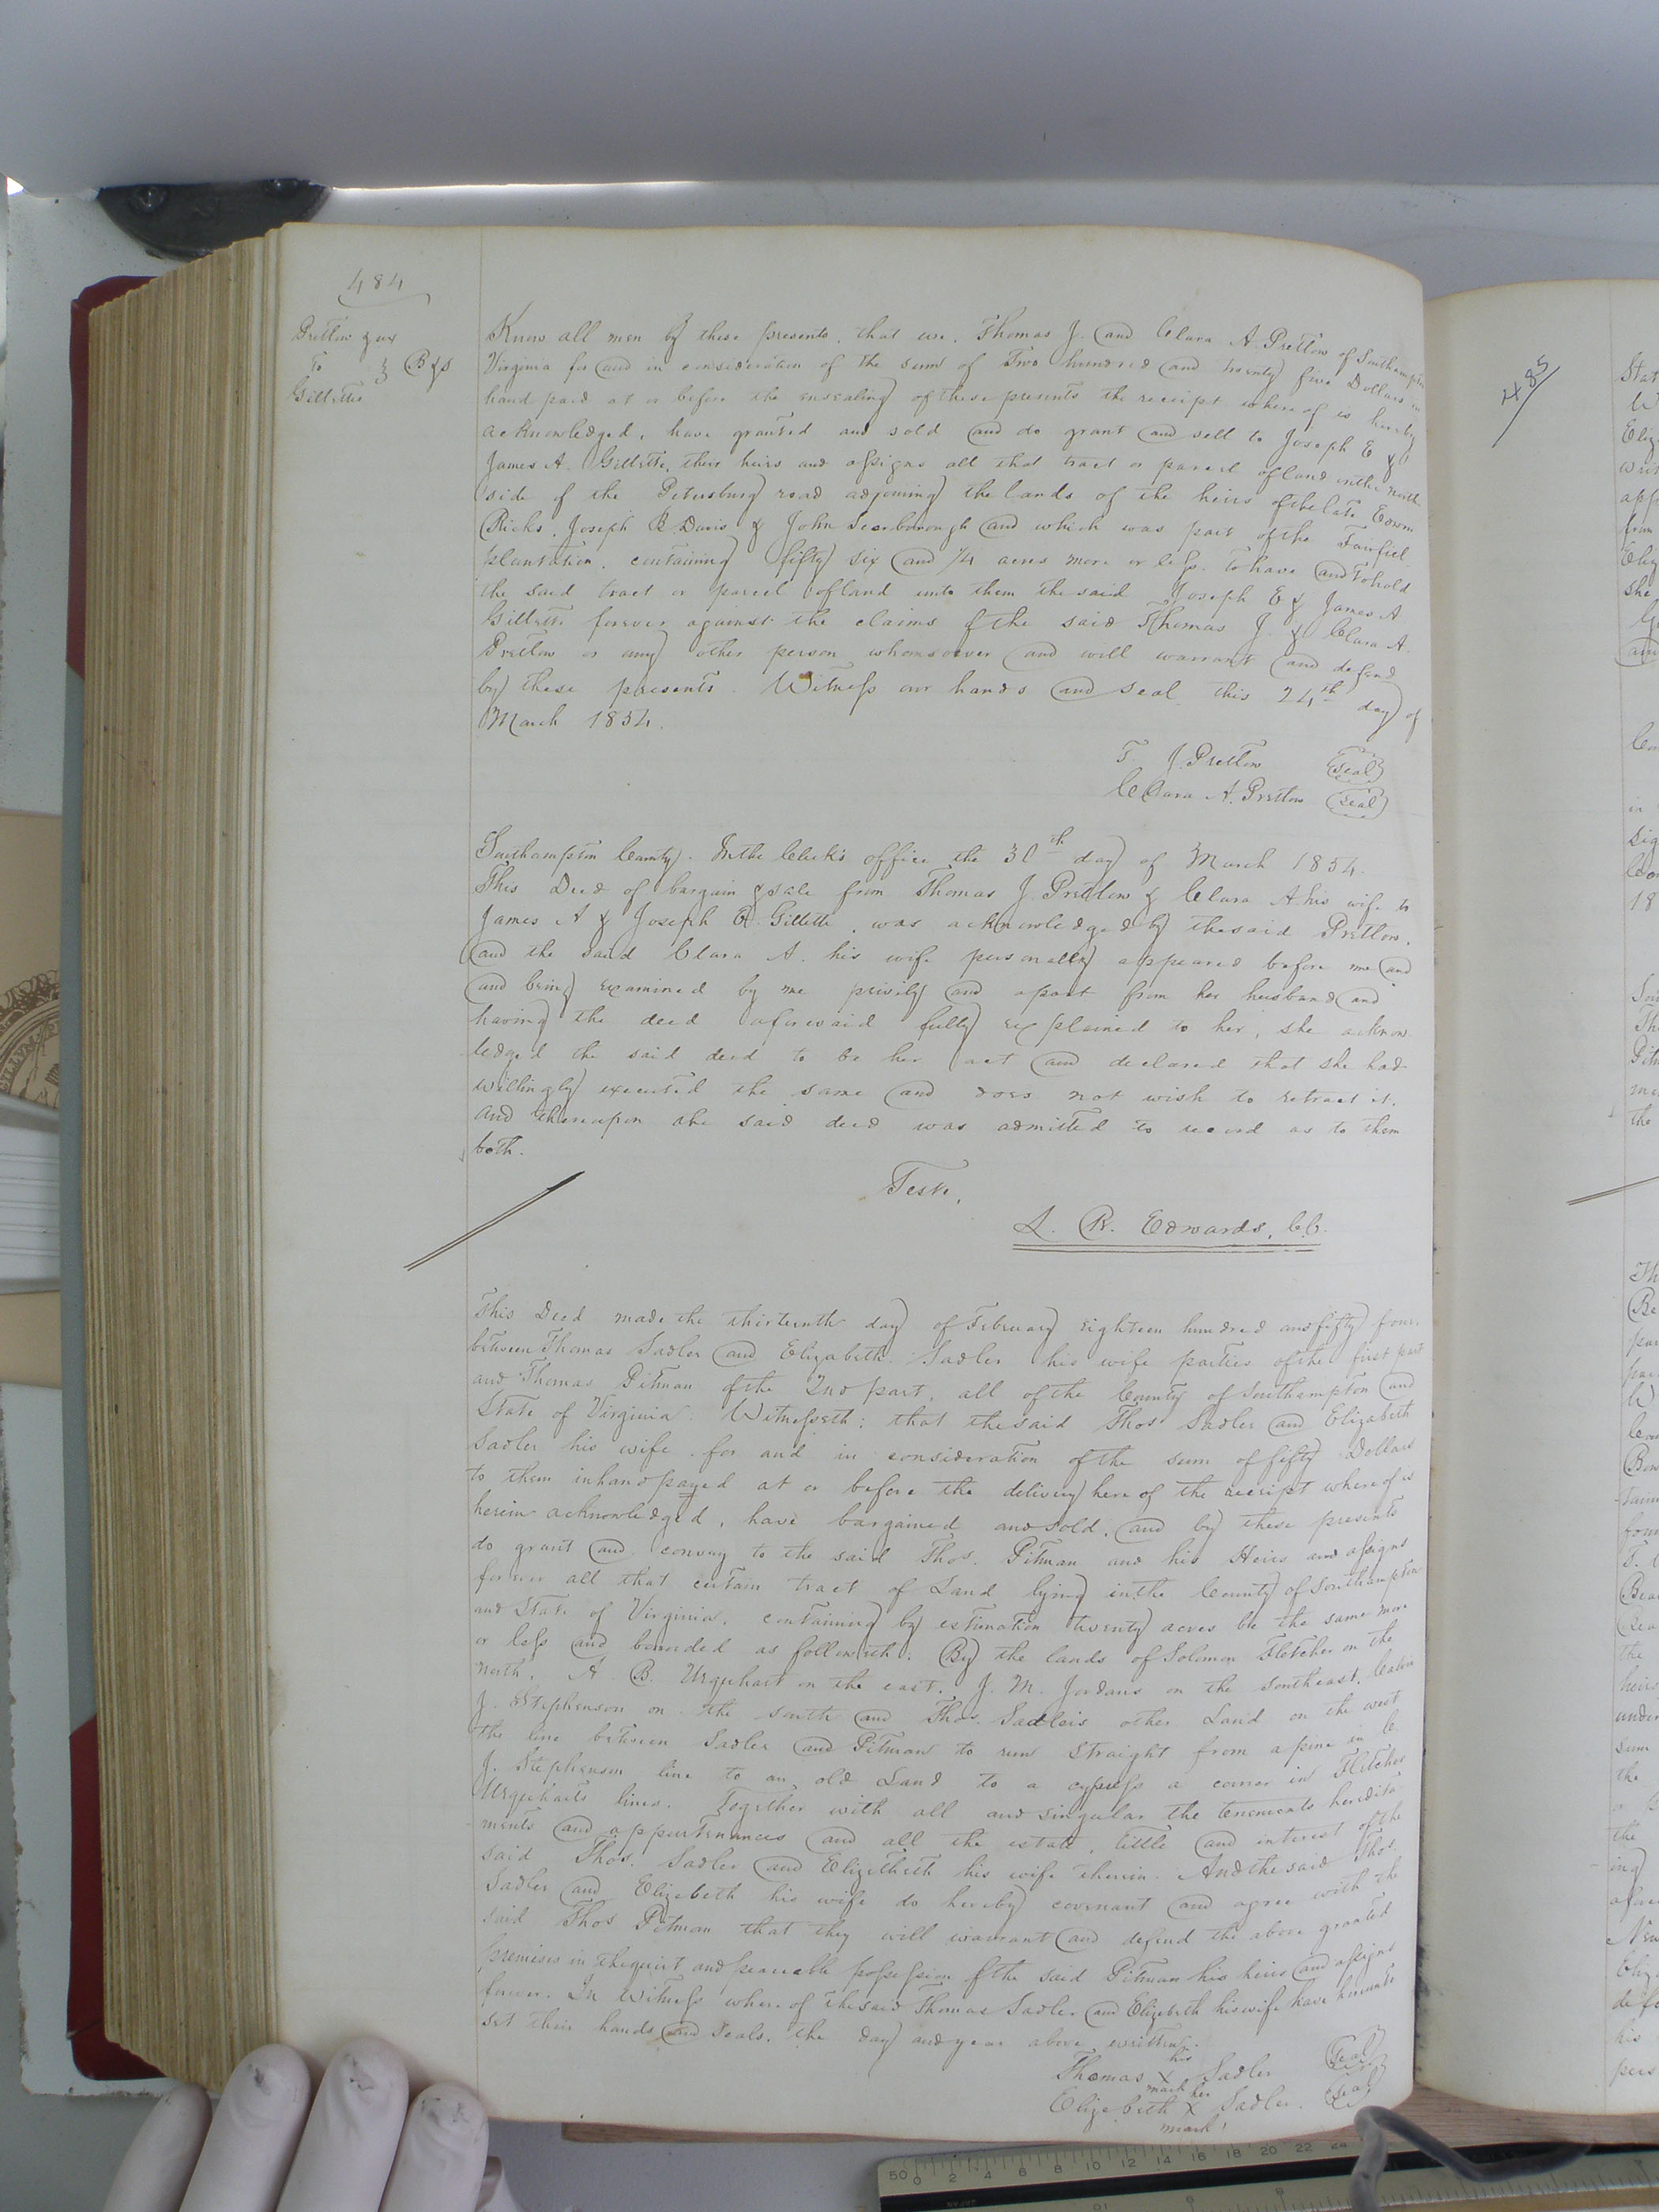 484
Pretlow & ux
To } B&S
Gillette
Know all men by these presents, that we, Thomas J. and Clara A. Pretlow of Southampton
Virginia for and in consideration of the sum of Two hundred and twenty five Dollars in
hand paid at or before the ensealing of these presents the receipt whereof is hereby
acknowledged, have granted and sold and do grant and sell to Joseph E &
James A. Gillette, their heirs and assigns all that tract or parcel of land on the north
side of the Petersburg road adjoining the lands of the heirs of the late Edwin
Ricks, Joseph B. Davis & John Scarborough and which was part of the Fairfiel
plantation, containing fifty six and 1/4 acres more or less. To have and to hold
the said tract or parcel of land unto them the said Joseph E & James A
Gillette forever against the claims of the said Thomas J. & Clara A.
Pretlow or any other person whomsoever and will warrant and defend
by these presents. Witness our hands and seal this 24th day of
March 1854.
T. J. Pretlow (Seal)
Clara A. Pretlow (Seal)
Southampton County. In the Clerk's office the 30th day of March 1854.
This Deed of bargain & sale from Thomas J. Pretlow & Clara A. his wife to
James A & Joseph E. Gillette, was acknowledged by the said Pretlow,
and the said Clara A. his wife personally appeared before me and
and being examined by me privily and apart from her husband and
having the deed aforesaid fully explained to her, she acknow
ledged the said deed to be her act and declared that she had
willingly executed the same and does not wish to retract it.
And thereupon the said deed was admitted to record as to them
both.
Teste,
L. R. Edwards, C.C.
This Deed made the thirteenth day of February eighteen hundred and fifty four.
between Thomas Sadler and Elizabeth Sadler his wife parties of the first part
and Thomas Pitman of the 2nd part, all of the County of Southampton and
State of Virginia. Witnesseth: that the said Thos Sadler and Elizabeth
Sadler his wife for and in consideration of the sum of fifty Dollars
to them in hand payed at or before the delivery here of the receipt where of is
herein acknowledged, have bargained and sold, and by these presents
do grant and convey to the said Thos. Pitman and his Heirs and assigns
forever all that certain tract of Land lying in the County of Southampton
and State of Virginia, containing by estimation twenty acres be the same more
or less and bounded as followeth: By the lands of Solomon Fletcher on the
north, A. B. Urquhart on the east, J. M. Jordans on the southeast,
J. Stephenson on the south and Thos. Sadlers other Land on the west
the line between Sadler and Pitman to run straight from a pine in C.
J. Stephenson line to an old Land to a cypress a corner in Fletcher
Urquharts lines. Together with all and singular the tenements heredita
ments and appurtenances and all the estate, tittle and interest of the
said Thos. Sadler and Elizetheth his wife therein. And the said Thos.
Sadler and Elizebeth his wife do hereby covenant and agree with the
said Thos Pitman that they will warrant and defend the above granted
premises in the quiet and peaceable possession of the said Pitman his heirs and assigns
forever. In Witness where of the said Thomas Sadler and Elizebeth his wife have hereunto
set their hands and seals, the day and year above written.
his
Thomas X Sadler (Seal)
mark her
Elizebeth X Sadler. (Seal)
mark
485